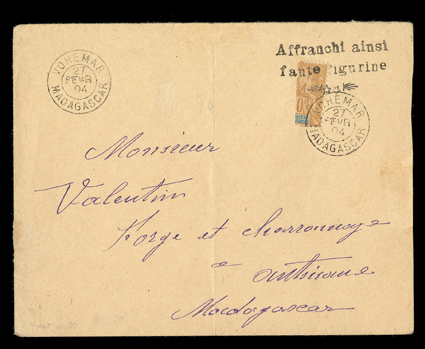 Affranchi ainsi
faute figurine
VOHEMAR
27
FEVR
04
MADAGASCAR
VOHEMAR
27
FEVR
04
MADAGASCAR
Monsieur
Valentin
Forge et charronnage
a antsirane
Madagascar